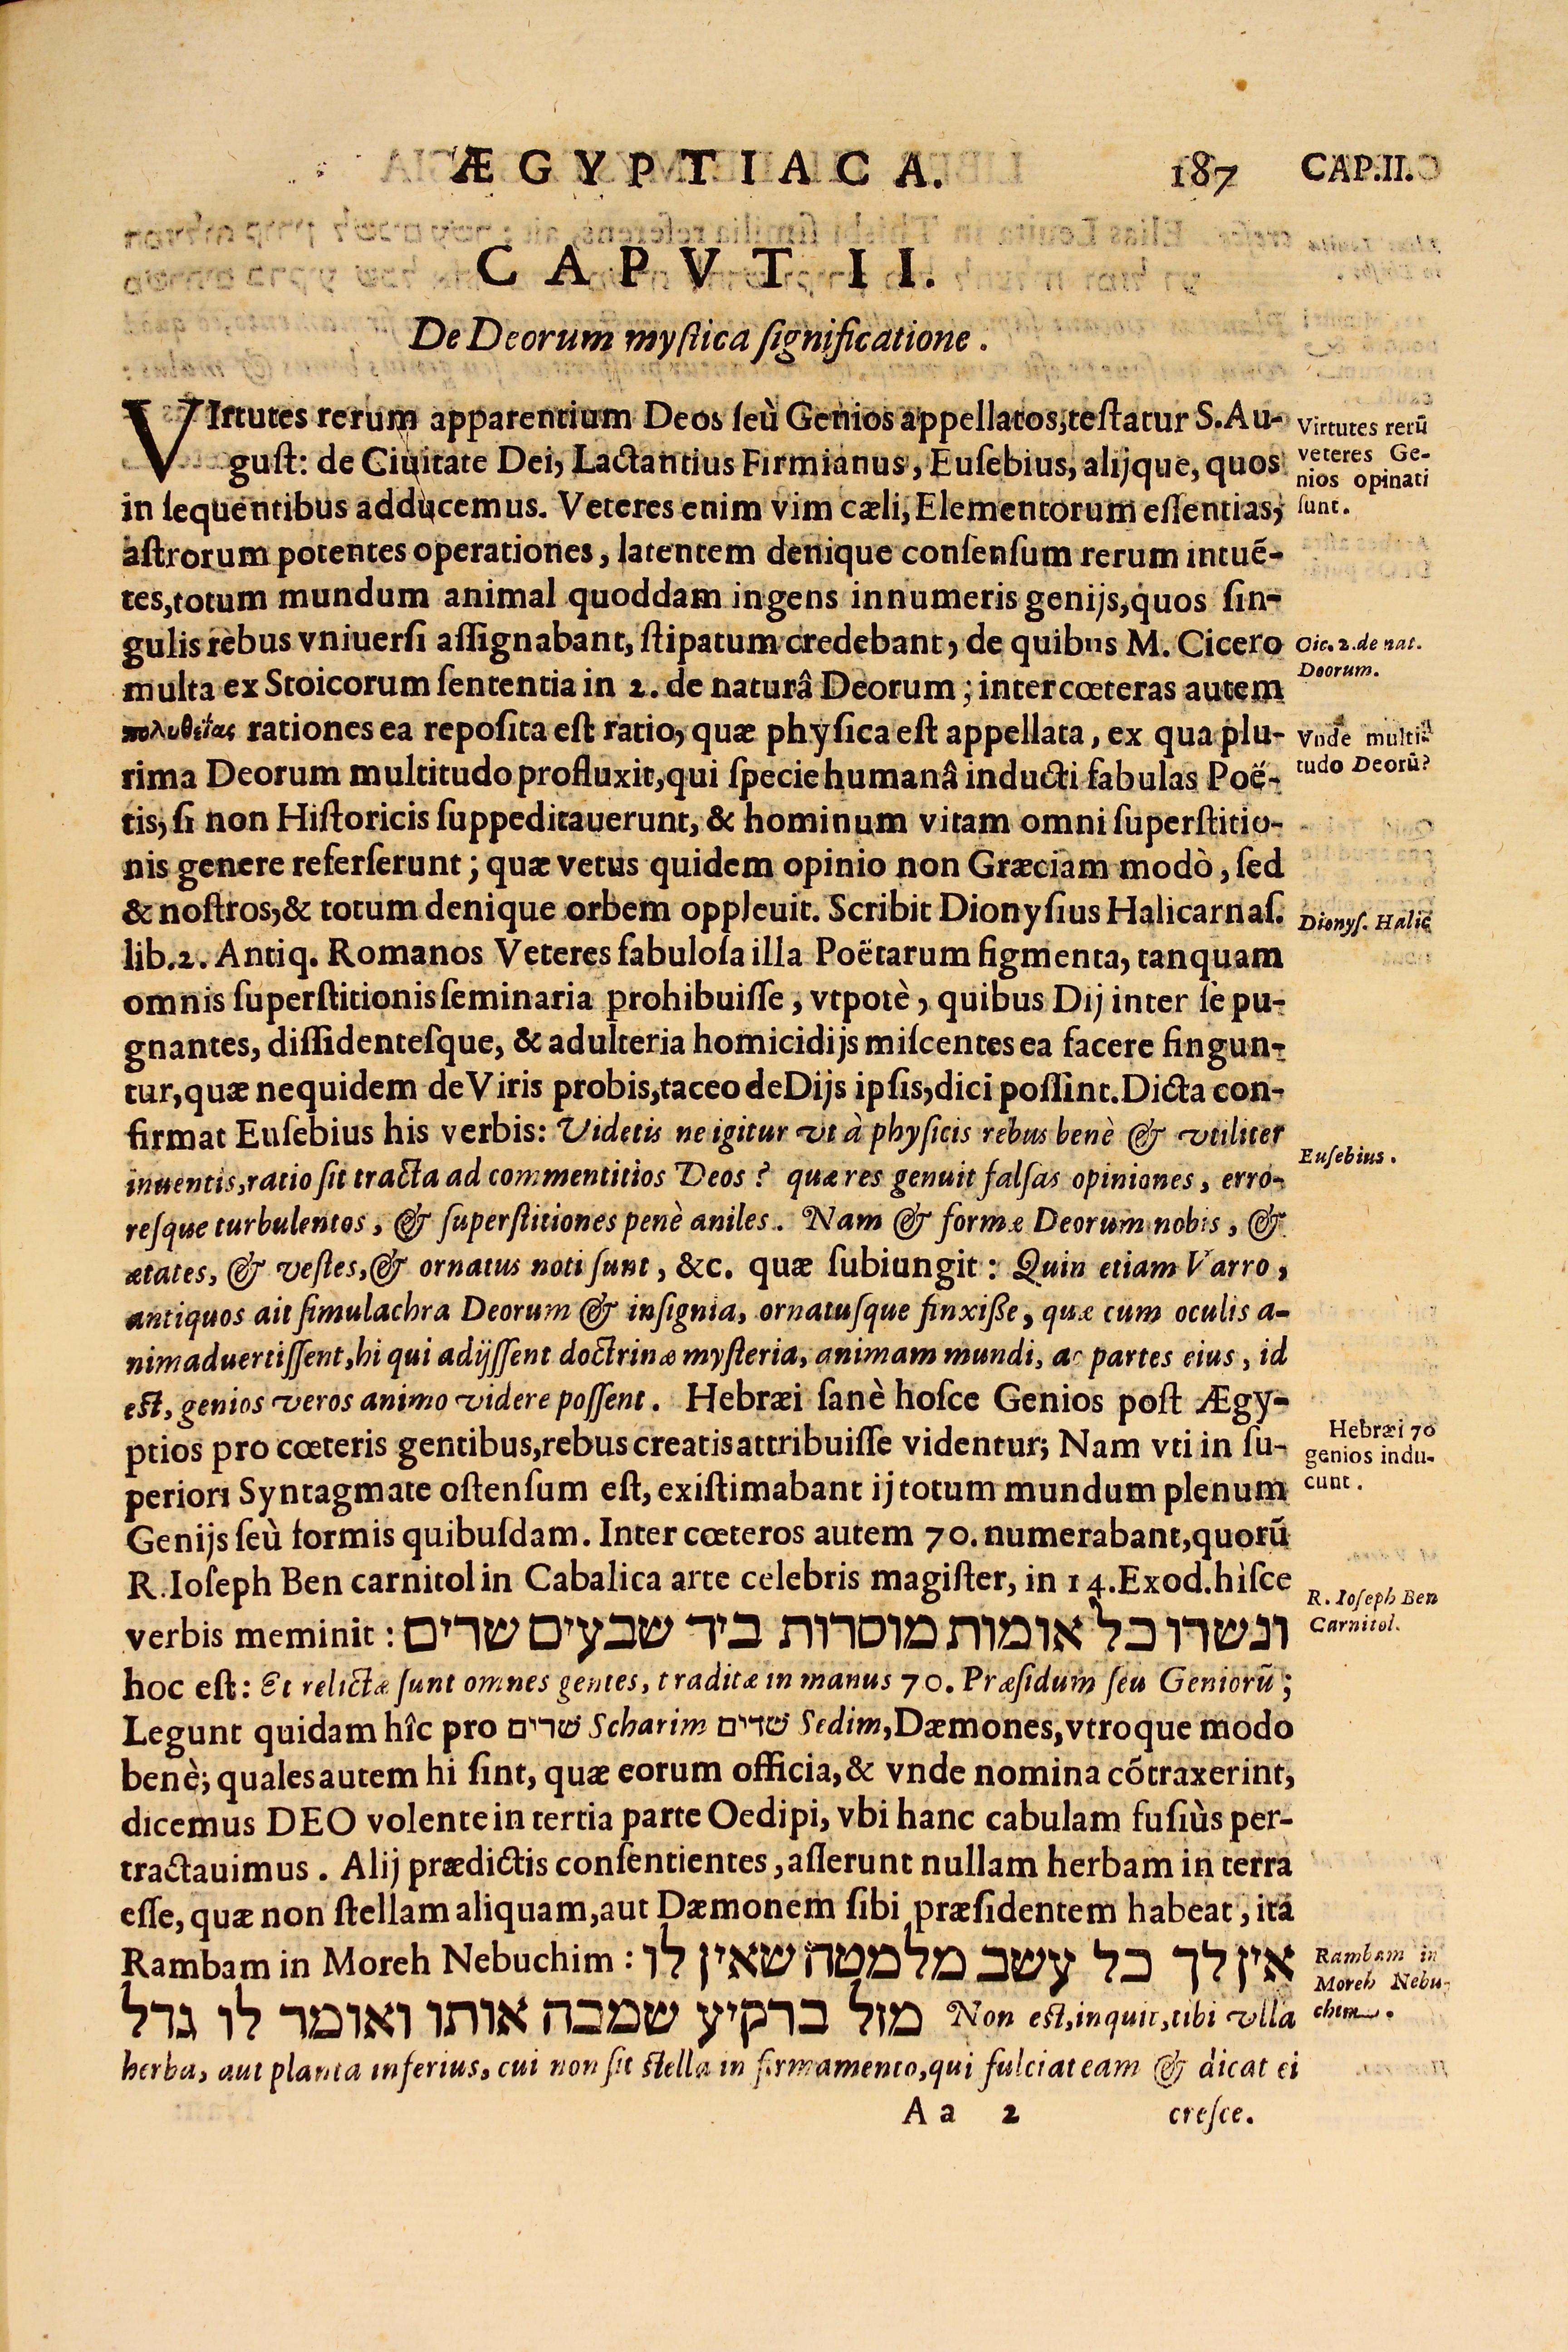 ÆGYPTIACA. 187 CAP.II.
CAPVT II.
De Deorum myſtica ſignificatione.
VIrtutes rerum apparentium Deos ſeù Genios appellatos, teſtatur S. Au-
guſt: de Ciuitate Dei, Lactantius Firmianus, Euſebius, alijque, quos
in ſequentibus adducemus. Veteres enim vim cæli, Elementorum eſſentias,
aſtrorum potentes operationes, latentem denique conſenſum rerum intuē-
tes, totum mundum animal quoddam ingens innumeris genijs, quos ſin-
gulis rebus vniuerſi aſſignabant, ſtipatum credebant, de quibus M. Cicero
multa ex Stoicorum ſententia in 2. de naturâ Deorum; inter cœteras autem
πολυθεΐας rationes ea repoſita eſt ratio, quæ phyſica eſt appellata, ex qua plu-
rima Deorum multitudo profluxit, qui ſpecie humanâ inducti fabulas Poë-
tis, ſi non Hiſtoricis ſuppeditauerunt, & hominum vitam omni ſuperſtitio-
nis genere referſerunt; quæ vetus quidem opinio non Græciam modò, ſed
& noſtros, & totum denique orbem oppleuit. Scribit Dionyſius Halicarnaſ.
lib.2. Antiq. Romanos Veteres fabuloſa illa Poëtarum figmenta, tanquam
omnis ſuperſtitionis ſeminaria prohibuiſſe, vtpotè, quibus Dij inter ſè pu-
gnantes, diſſidenteſque, & adulteria homicidijs miſcentes ea facere fingun-
tur, quæ nequidem de Viris probis, taceo de Dijs ipſis, dici poſſint. Dicta con-
firmat Euſebius his verbis: Videtis ne igitur vt à phyſicis rebus benè & vtiliter
inuentis, ratio ſit tracta ad commentitios Deos? quæ res genuit falſas opiniones, erro-
reſque turbulentos, & ſuperſtitiones penè aniles. Nam & formæ Deorum nobis, &
ætates, & veſtes, & ornatus noti ſunt, &c. quæ ſubiungit: Quin etiam Varro,
antiquos ait ſimulachra Deorum & inſignia, ornatuſque finxiſſe, quæ cum oculis a-
nimaduertiſſent, hi qui adijſſent doctrinæ myſteria, animam mundi, ac partes eius, id
eſt, genios veros animo videre poſſent. Hebræi ſanè hoſce Genios poſt Ægy-
ptios pro cœteris gentibus, rebus creatis attribuiſſe videntur; Nam vti in ſu-
periori Syntagmate oſtenſum eſt, exiſtimabant ij totum mundum plenum
Genijs ſeù formis quibuſdam. Inter cœteros autem 70. numerabant, quorū
R. Ioſeph Ben carnitol in Cabalica arte celebris magiſter, in 14. Exod. hìſce
verbis meminit: ונשרו כל אומות מוסרות ביד שבעים שרים
hoc eſt: Et relictæ ſunt omnes gentes, traditæ in manus 70. Præſidum ſeu Geniorū;
Legunt quidam hîc pro שרים Scharim שדים Sedim, Dæmones, vtroque modo
benè; quales autem hi ſint, quæ eorum officia, & vnde nomina cōtraxerint,
dicemus DEO volente in tertia parte Oedipi, vbi hanc cabulam fuſiùs per-
tractauimus. Alij prædictis conſentientes, aſſerunt nullam herbam in terra
eſſe, quæ non ſtellam aliquam, aut Dæmonem ſibi præſidentem habeat, ità
Rambam in Moreh Nebuchim: אין לך כל עשב מלמטה שאין לו
מזל ברקיע שמכה אותו ואומר לו גדל Non eſt, inquit, tibi vlla
herba, aut planta inferius, cui non ſit ſtella in firmamento, qui fulciat eam & dicat ei
Aa 2 creſce.
Virtutes rerū
veteres Ge-
nios opinati
ſunt.
Cic. 2. de nat.
Deorum.
Vnde multi-
tudo Deorū?
Dionyſ. Halic
Euſebius.
Hebræi 70
genios indu-
cunt.
R. Ioſeph Ben
Carnitol.
Rambam in
Moreh Nebu-
chim.